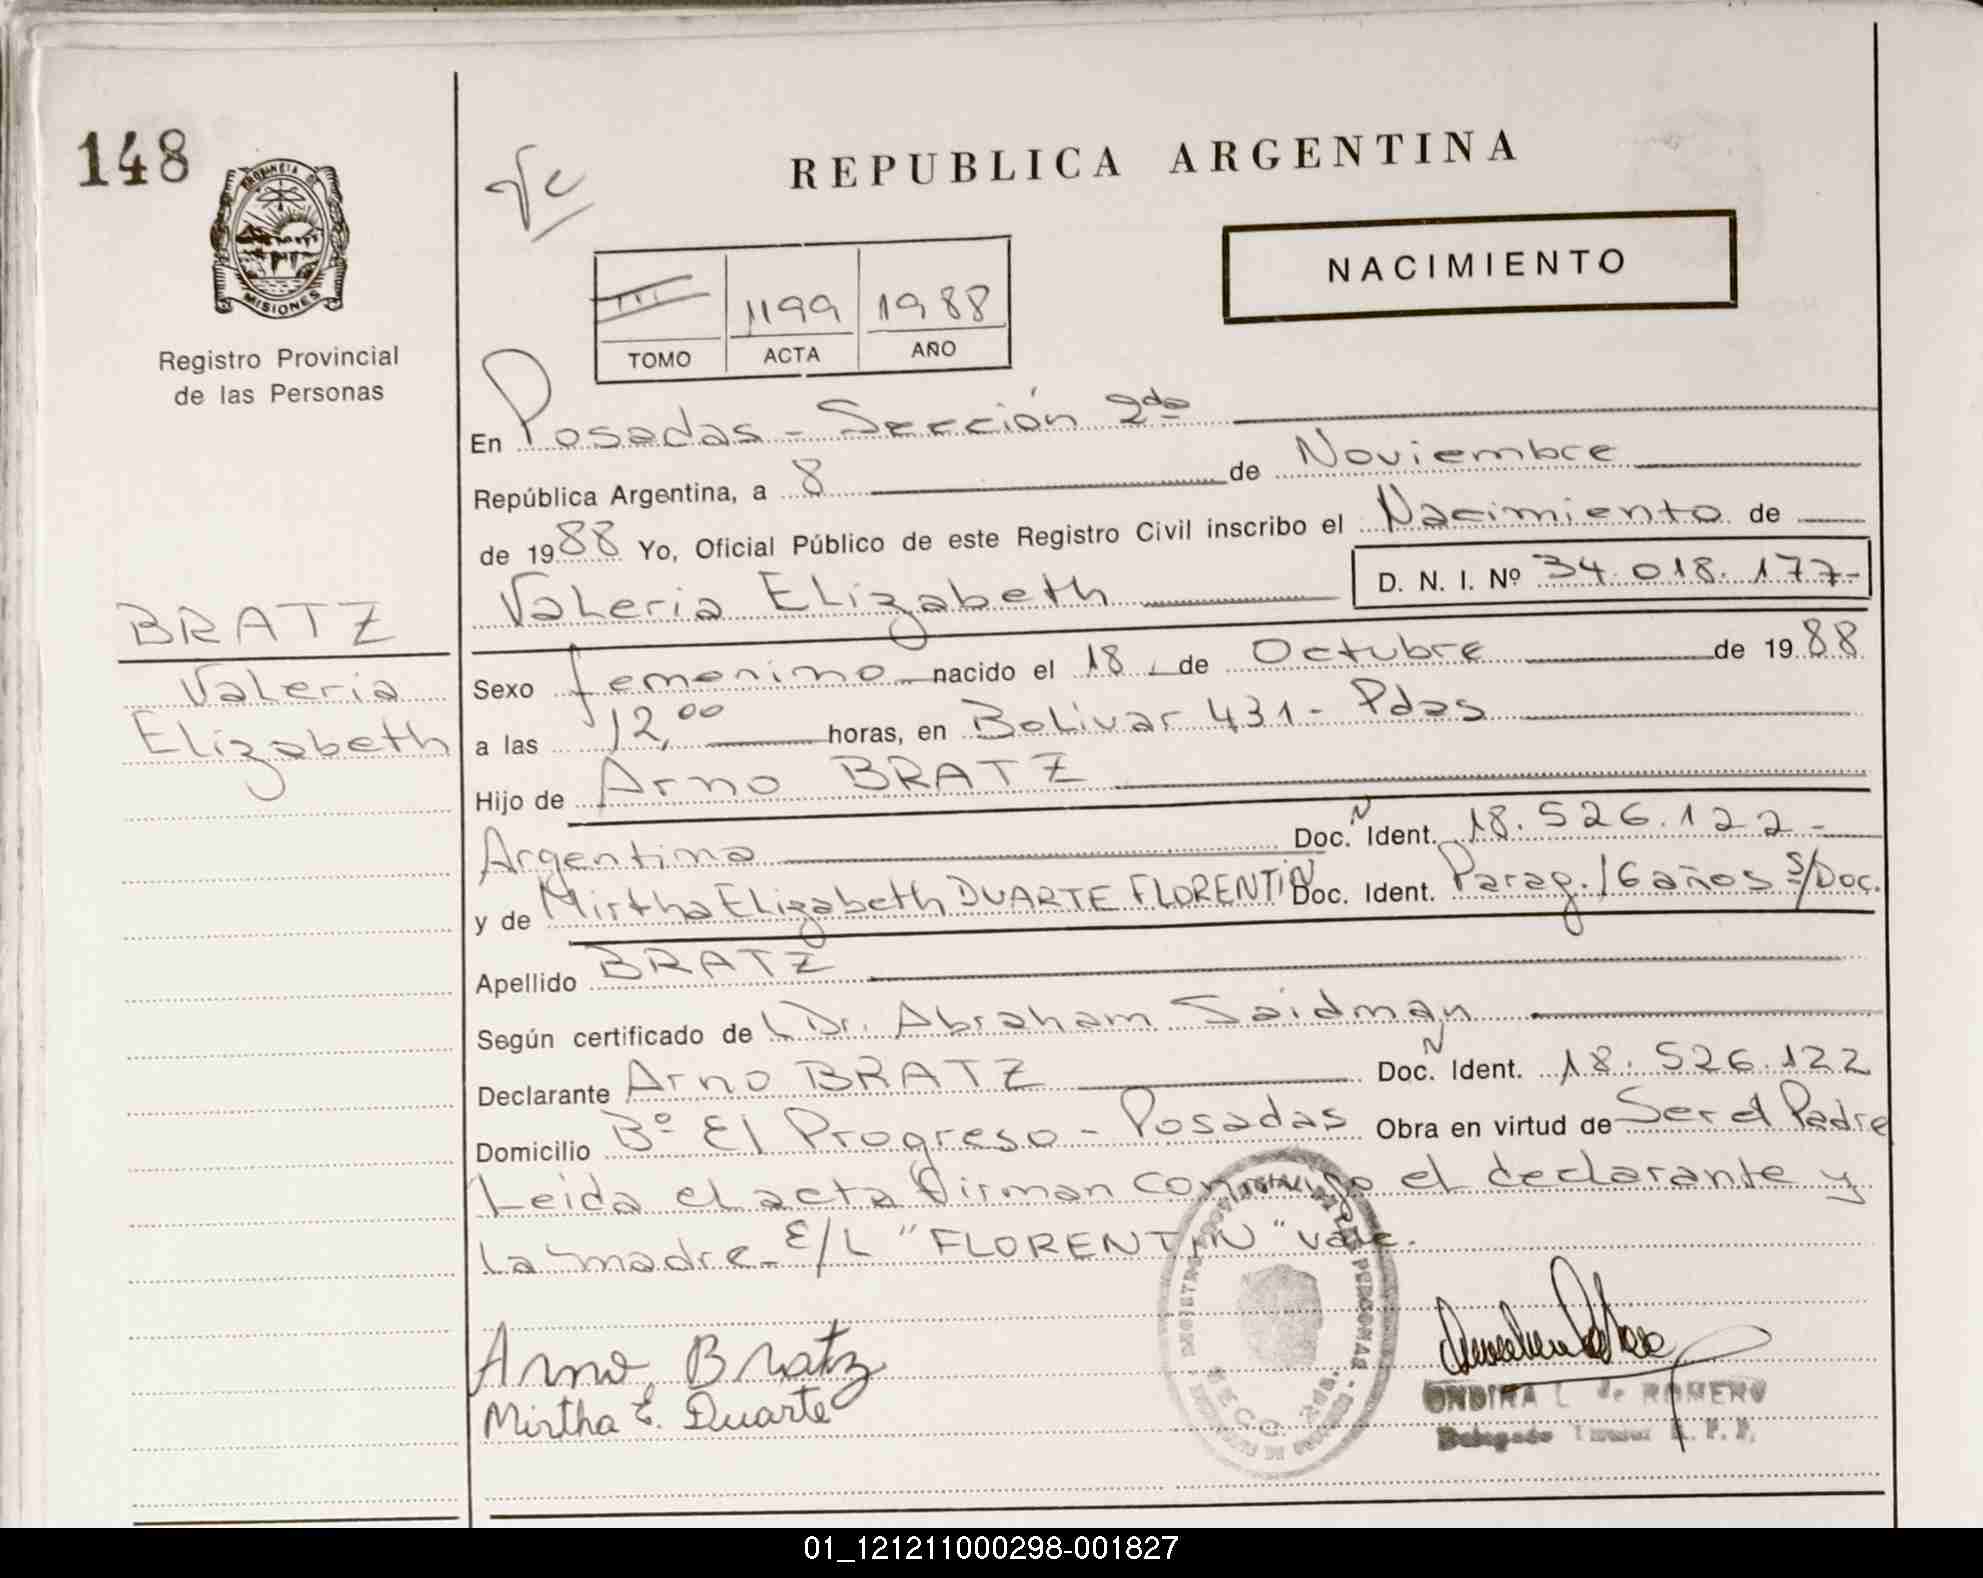 148
PROVINCIA DE
MISIONES
Registro Provincial
de las Personas
REPUBLICA ARGENTINA
NACIMIENTO
1199 1988
TOMO ACTA AÑO
En Posadas - Sección 2da
República Argentina, a 8 de Noviembre
de 1988 Yo, Oficial Público de este Registro Civil inscribo el Nacimiento de
Valeria Elizabeth D. N. I. Nº 34.018.177-
BRATZ
Valeria
Elizabeth
Sexo femenino nacido el 18 de Octubre de 1988
a las 12,00 horas, en Bolivar 431 - Pdas
Hijo de Arno BRATZ
Argentino Doc. N Ident. 18.526.122-
y de Mirtha Elizabeth DUARTE FLORENTIN Doc. Ident. Parag. 16 años s/Doc.
Apellido BRATZ
Según certificado de Dr. Abraham Saidman
Declarante Arno BRATZ Doc. N Ident. 18.526.122
Domicilio Bº El Progreso - Posadas Obra en virtud de Ser el Padre
Leida el acta firman conmigo el declarante y
la madre - E/L "FLORENTIN" vale.
Arno Bratz
Mirtha E. Duarte
ONDINA L. de ROMERO
Delegado Titular R. P. P.
01_121211000298-001827